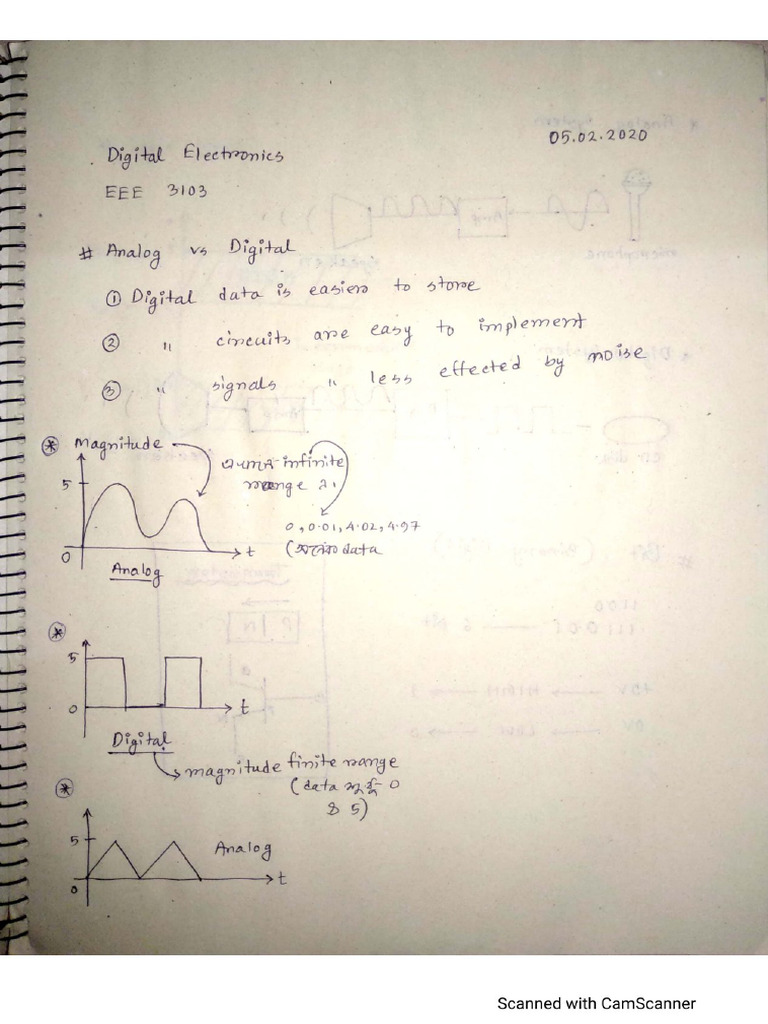 05.02.2020
Digital Electronics
EEE 3103
# Analog vs Digital
① Digital data is easier to store
② " circuits are easy to implement
③ " signals " less effected by noise
* Magnitude
infinite
range
5
0, 0.01, 4.02, 4.97
(অনেক data
0
t
Analog
*
5
0
t
Digital
magnitude finite range
(data শুধু 0
& 5)
*
5
Analog
0
t
Scanned with CamScanner